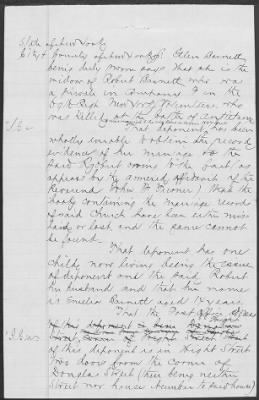 State of New York
City & County of New York ss. Ellen Barnett
being duly sworn says that she is the
widow of Robert Barnett who was
a private in Company I in the
Regt New York Volunteers who
was killed at the battle of Antietam
That deponent has been
wholly unable to obtain the record
evidence of her marriage to the
said Robert owing to the fact as
appears by the annexed affidavit of the
Reverend John that the
books containing the marriage records
of said Church have been either mis
laid or lost and the same cannot
be found.
That deponent has one
child now living being the issue
of deponent and the said Robert
her husband and that her name
is Amelia Barnett aged 14 years
That the Post Office address
of this deponent is in Hight Street
two doors from the corner of
Douglas Street (there being neither
Street nor house number to said house)